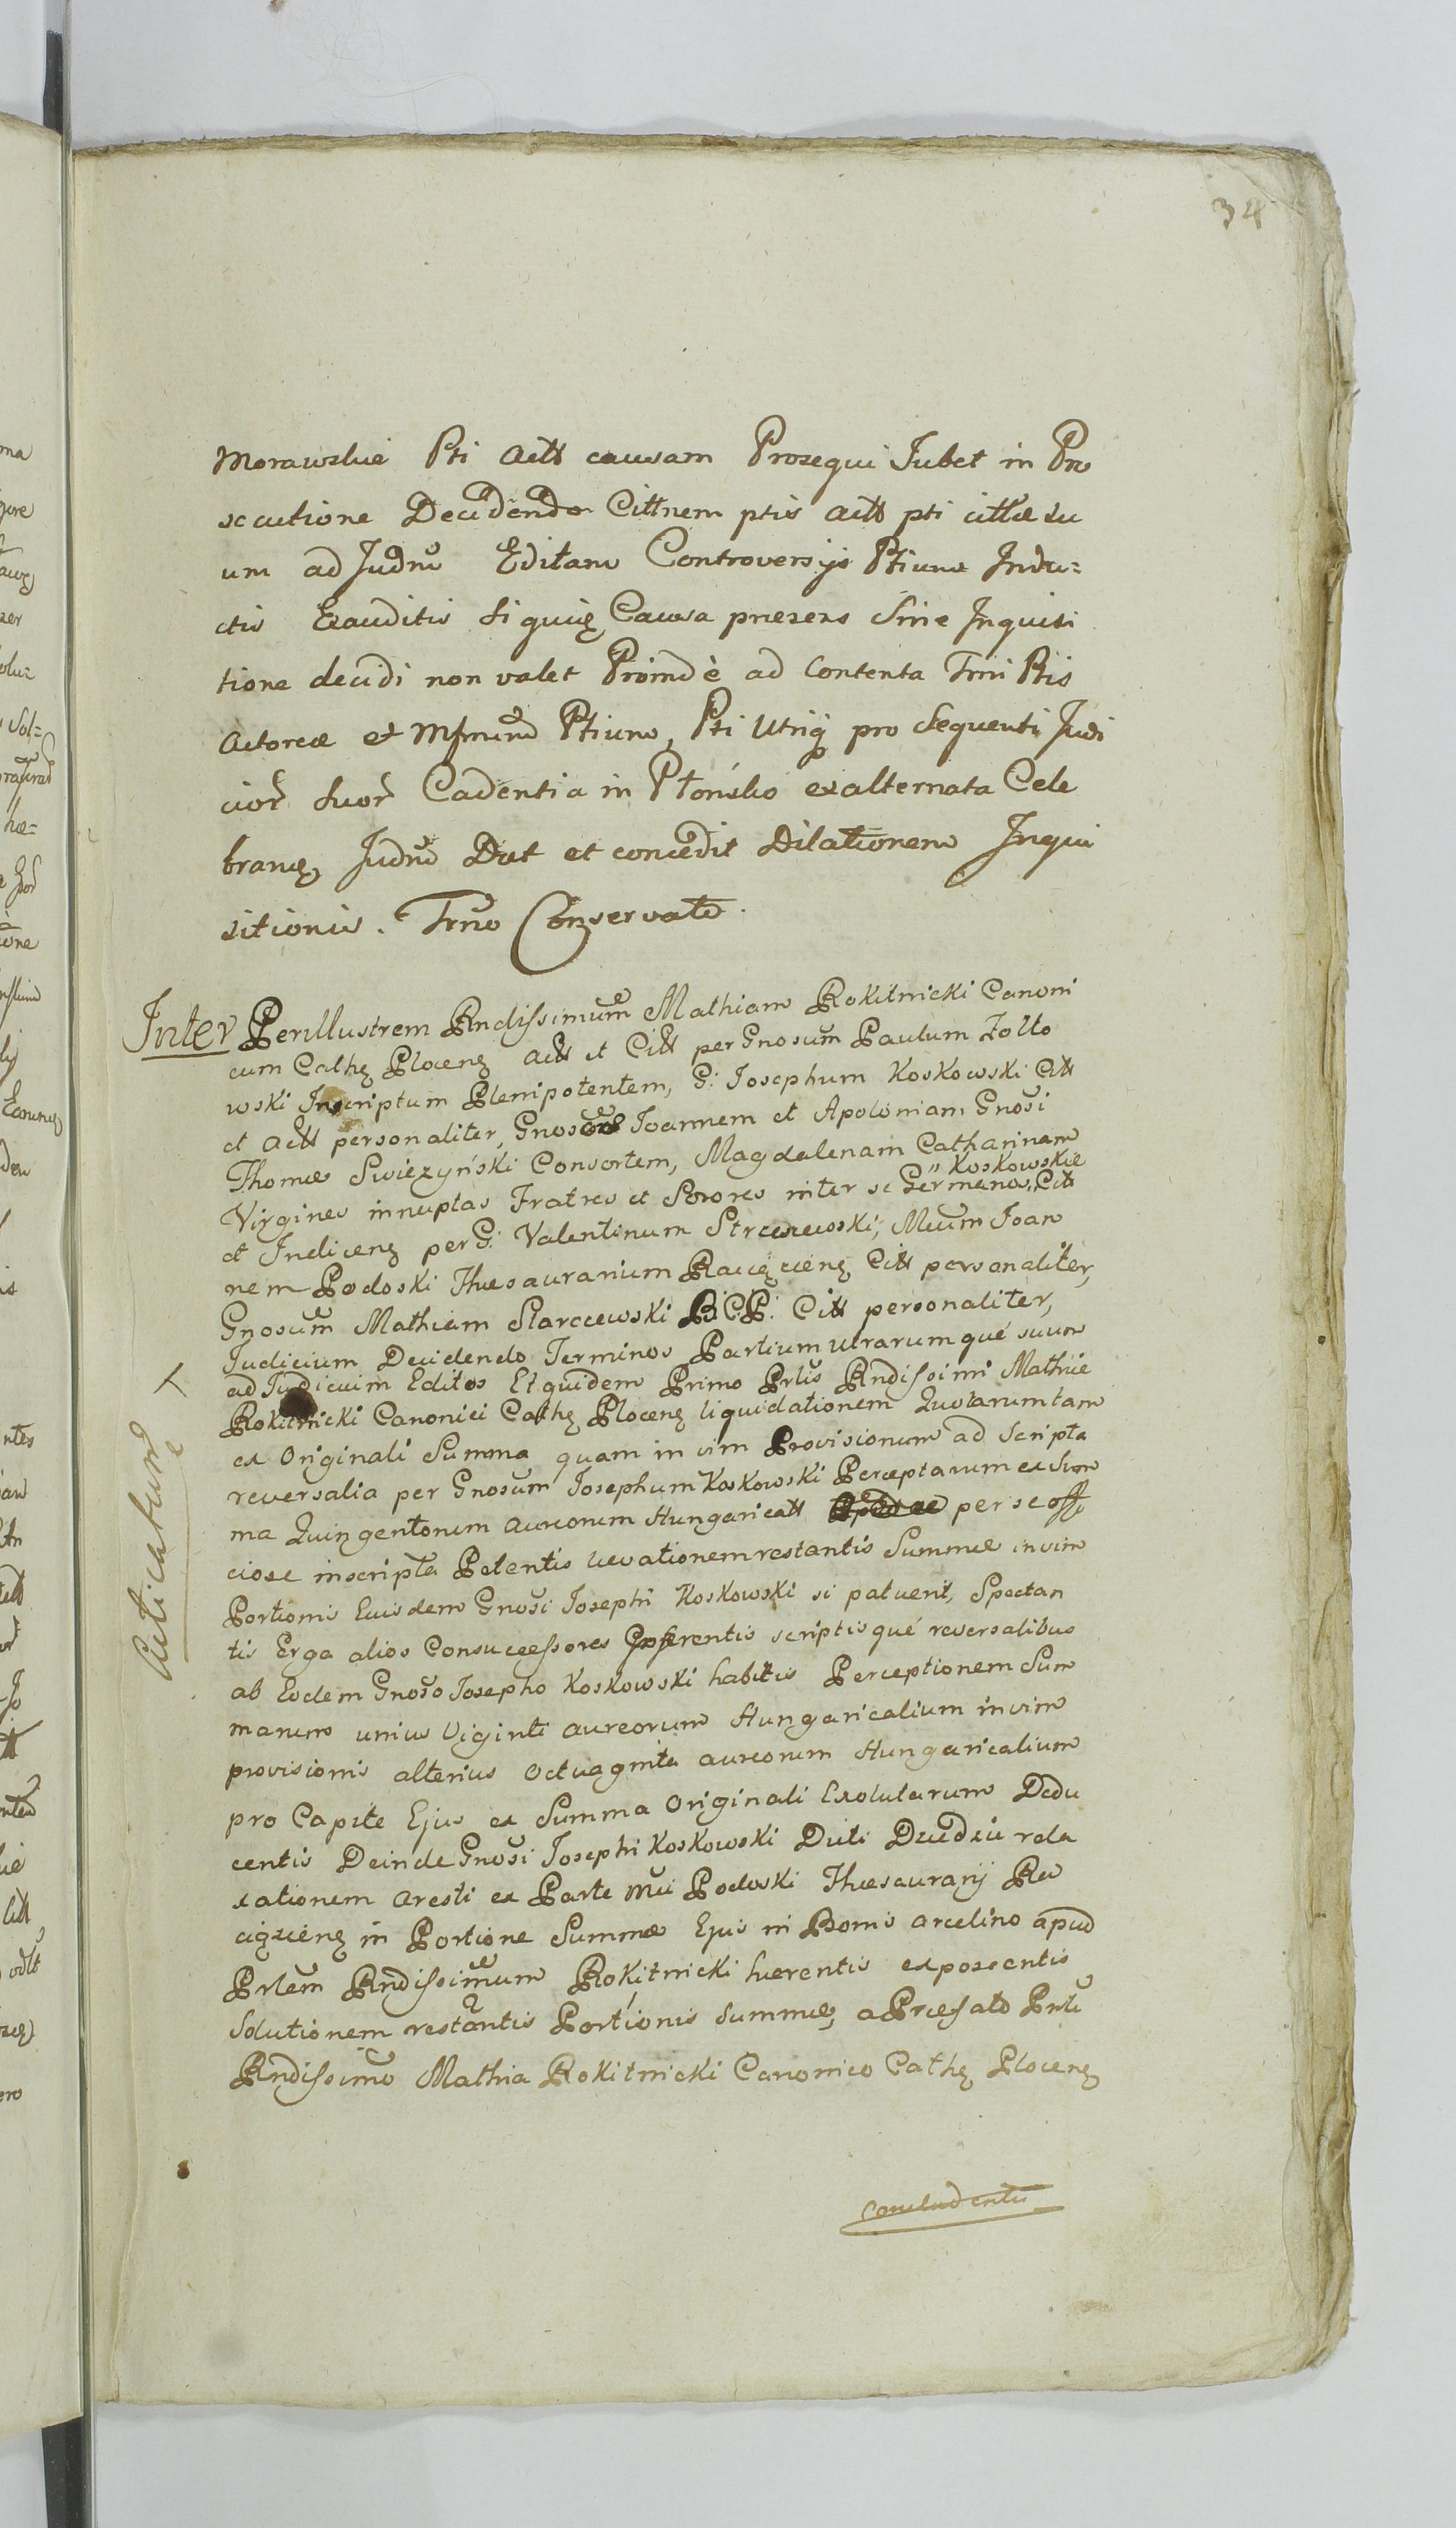 34
Morawskie Pti Actt causam Prosequi Jubet in Pro
secutione Decidendo Cittnem ptis actt pti cittae su
um ad Judnu Editam Controversijs Ptium Indu=
ctis Exauditis Siquid Causa praesens Sine Inquisi
tione decidi non valet Proindè ad Contenta Trni Ptis
Actoreae et Ptium, Pti Utriq pro Sequenti Judi
cior suor Cadentia in Płońsko exalternata Cele
bran Judnu Dat et concedit Dilationem Inqui
sitionis. Trno Conservato.
Inter Perillustrem Rndissimum Mathiam Rokitnicki Canoni
cum Cathę Plocenę Actt et Citt per Gnosum Paulum Zolto
wski Inscriptum Plenipotentem, G: Josephum Koskowski Citt
et Actt personaliter, Gnosos Joannem et Apoloniam Gnosi
Thomae Swiezyński Consortem, Magdalenam Catharinam
Virgines innuptas Fratres et Sorores inter se Germanos, Koskowskie Citt
et Indicenę per G: Valentinum Mcum Joan
nem Podoski Thesaurarium Raciązcienę Citt personaliter,
Gnosum Mathiam Starczewski B:C:P: Citt personaliter,
Judicium Decidendo Terminos Partium utrarumqué suum
ad Judicium Editos Et quidem Primo Prlis Rndissimi Mathiae
Rokitnicki Canonici Cathę Plocenę liquidationem Quotarum tam
ex Originali Summa quam in vim Provisionum ad Scripta
reversalia per Gnosum Josephum Koskowski Perceptarum ex Sum
ma Quingentorum Aureorum Hungaricatt per se offi
ciose inscripta Petentis levationem restantis Summae in vim
Portionis Eiusdem Gnosi Josephi Koskowski si patuerit, Spectan
tis Erga alios Consuccessores Offerentis scriptisqué reversalibus
ab Eodem Gnoso Josepho Koskowski habitis Perceptionem Sum
marum unius Viginti aureorum Hungaricalium in vim
provisionis alterius Octuaginta aureorum Hungaricalium
pro Capite Ejus ex Summa Originali Exolutarum Dedu
centis Deinde Gnosi Josephi Koskowski Duti Dzudziu rela
xationem Aresti ex Parte Mci Podoski Thesaurarij Ra
cigzienę in Portione Summae Ejus in Bonis Arcelino apud
Prlem Rndissimum Rokitnicki haerentis exposcentis
Solutionem restantis Portionis Summae, a Praefato Prli
Rndissimo Mathia Rokitnicki Canonico Cathę Plocenę
concludentis